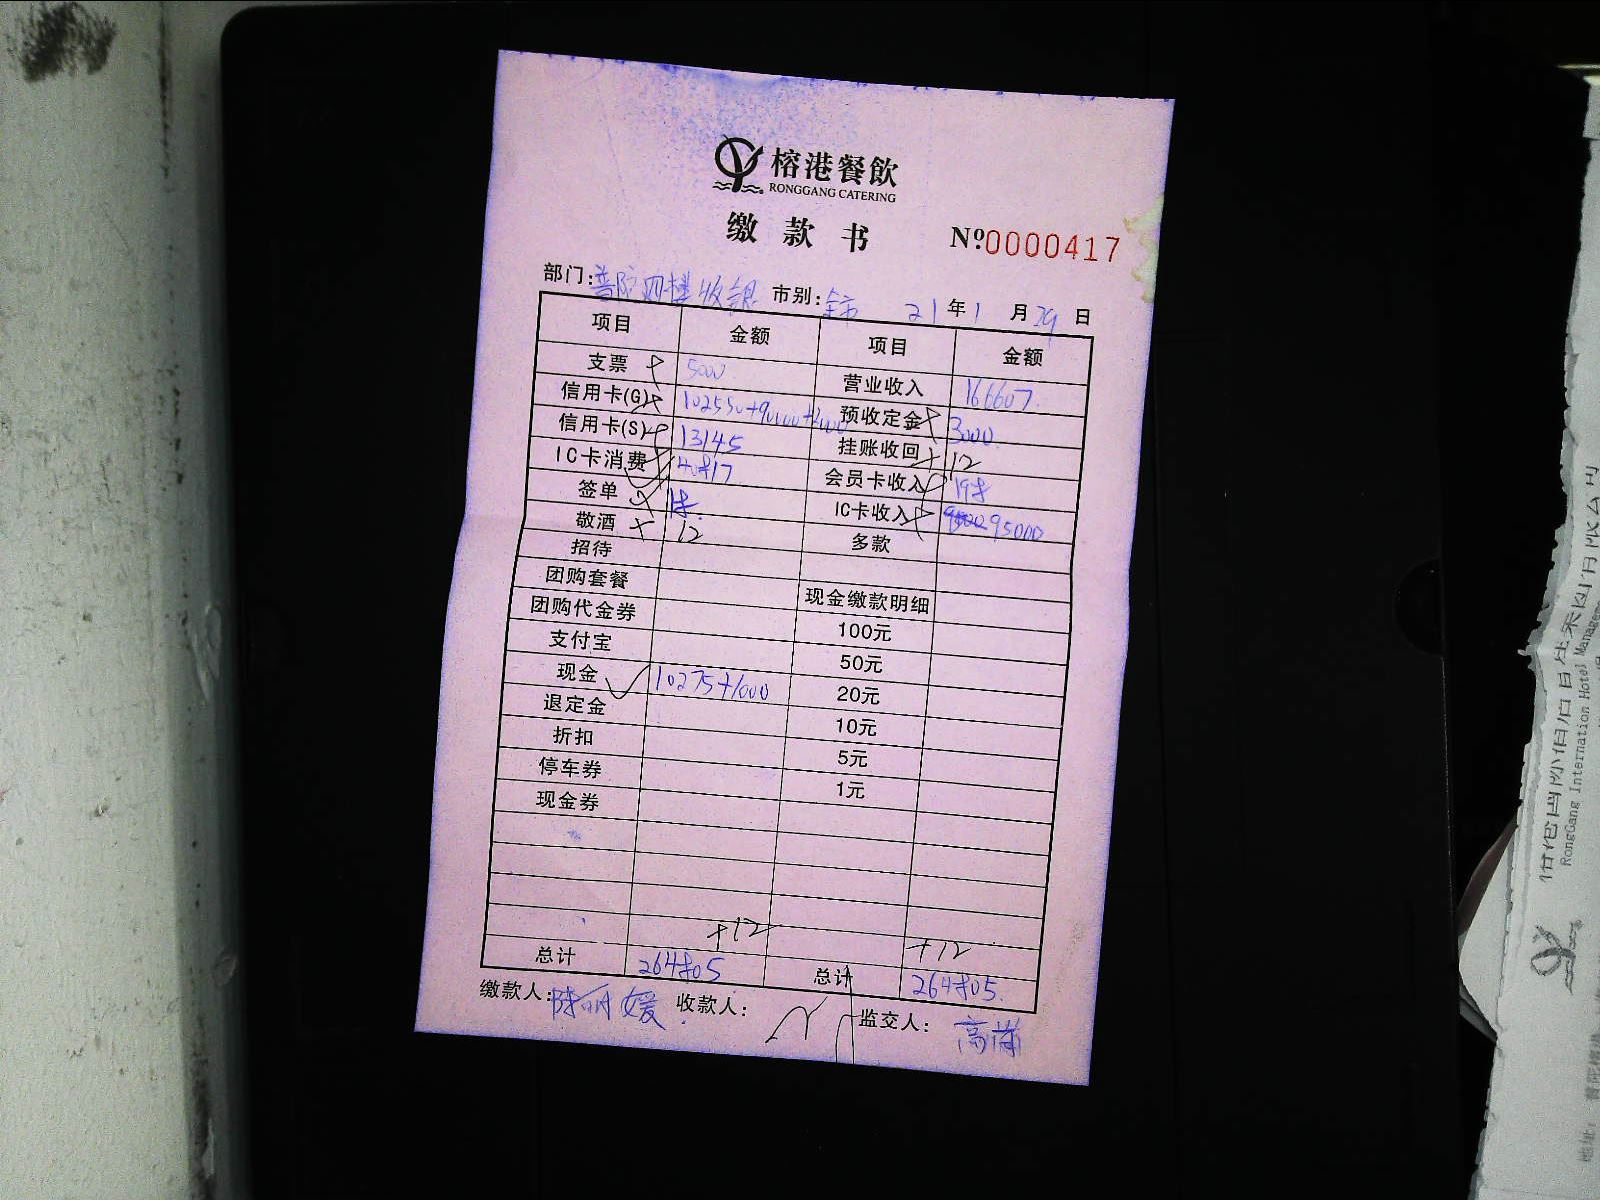 榕港餐飲
RONGGANG CATERING
缴款书 Nº0000417
部门:普陀四楼收银 市别:全市 21年1月29日
项目 金额 项目 金额
支票 5000 营业收入 166607
信用卡(G) 102550+90000+2000 预收定金 3000
信用卡(S) 13145 挂账收回 12
IC卡消费 40817 会员卡收入 198
签单 18 IC卡收入 95000
敬酒 12 多款
招待
团购套餐 现金缴款明细
团购代金券 100元
支付宝 50元
现金 10275+1000 20元
退定金 10元
折扣 5元
停车券 1元
现金券
+12 +12
总计 264805 总计 264805
缴款人: 收款人: 监交人:
RongGang International Hotel Manage